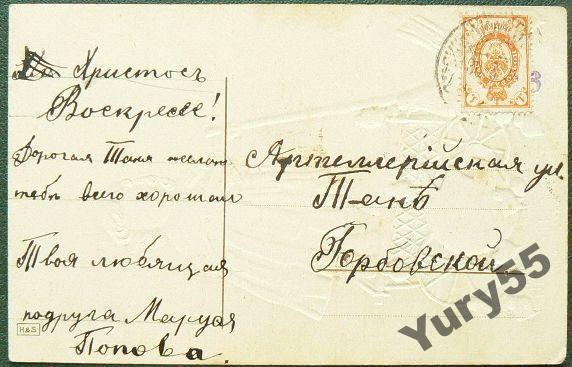 Христосъ
Воскресе!
Дорогая Таня желаю
тебѣ всего хорошаго
Твоя любящая
подруга Маруся
Попова.
Артиллерійская ул.
Танѣ
Горбовской
H&S
Yury55